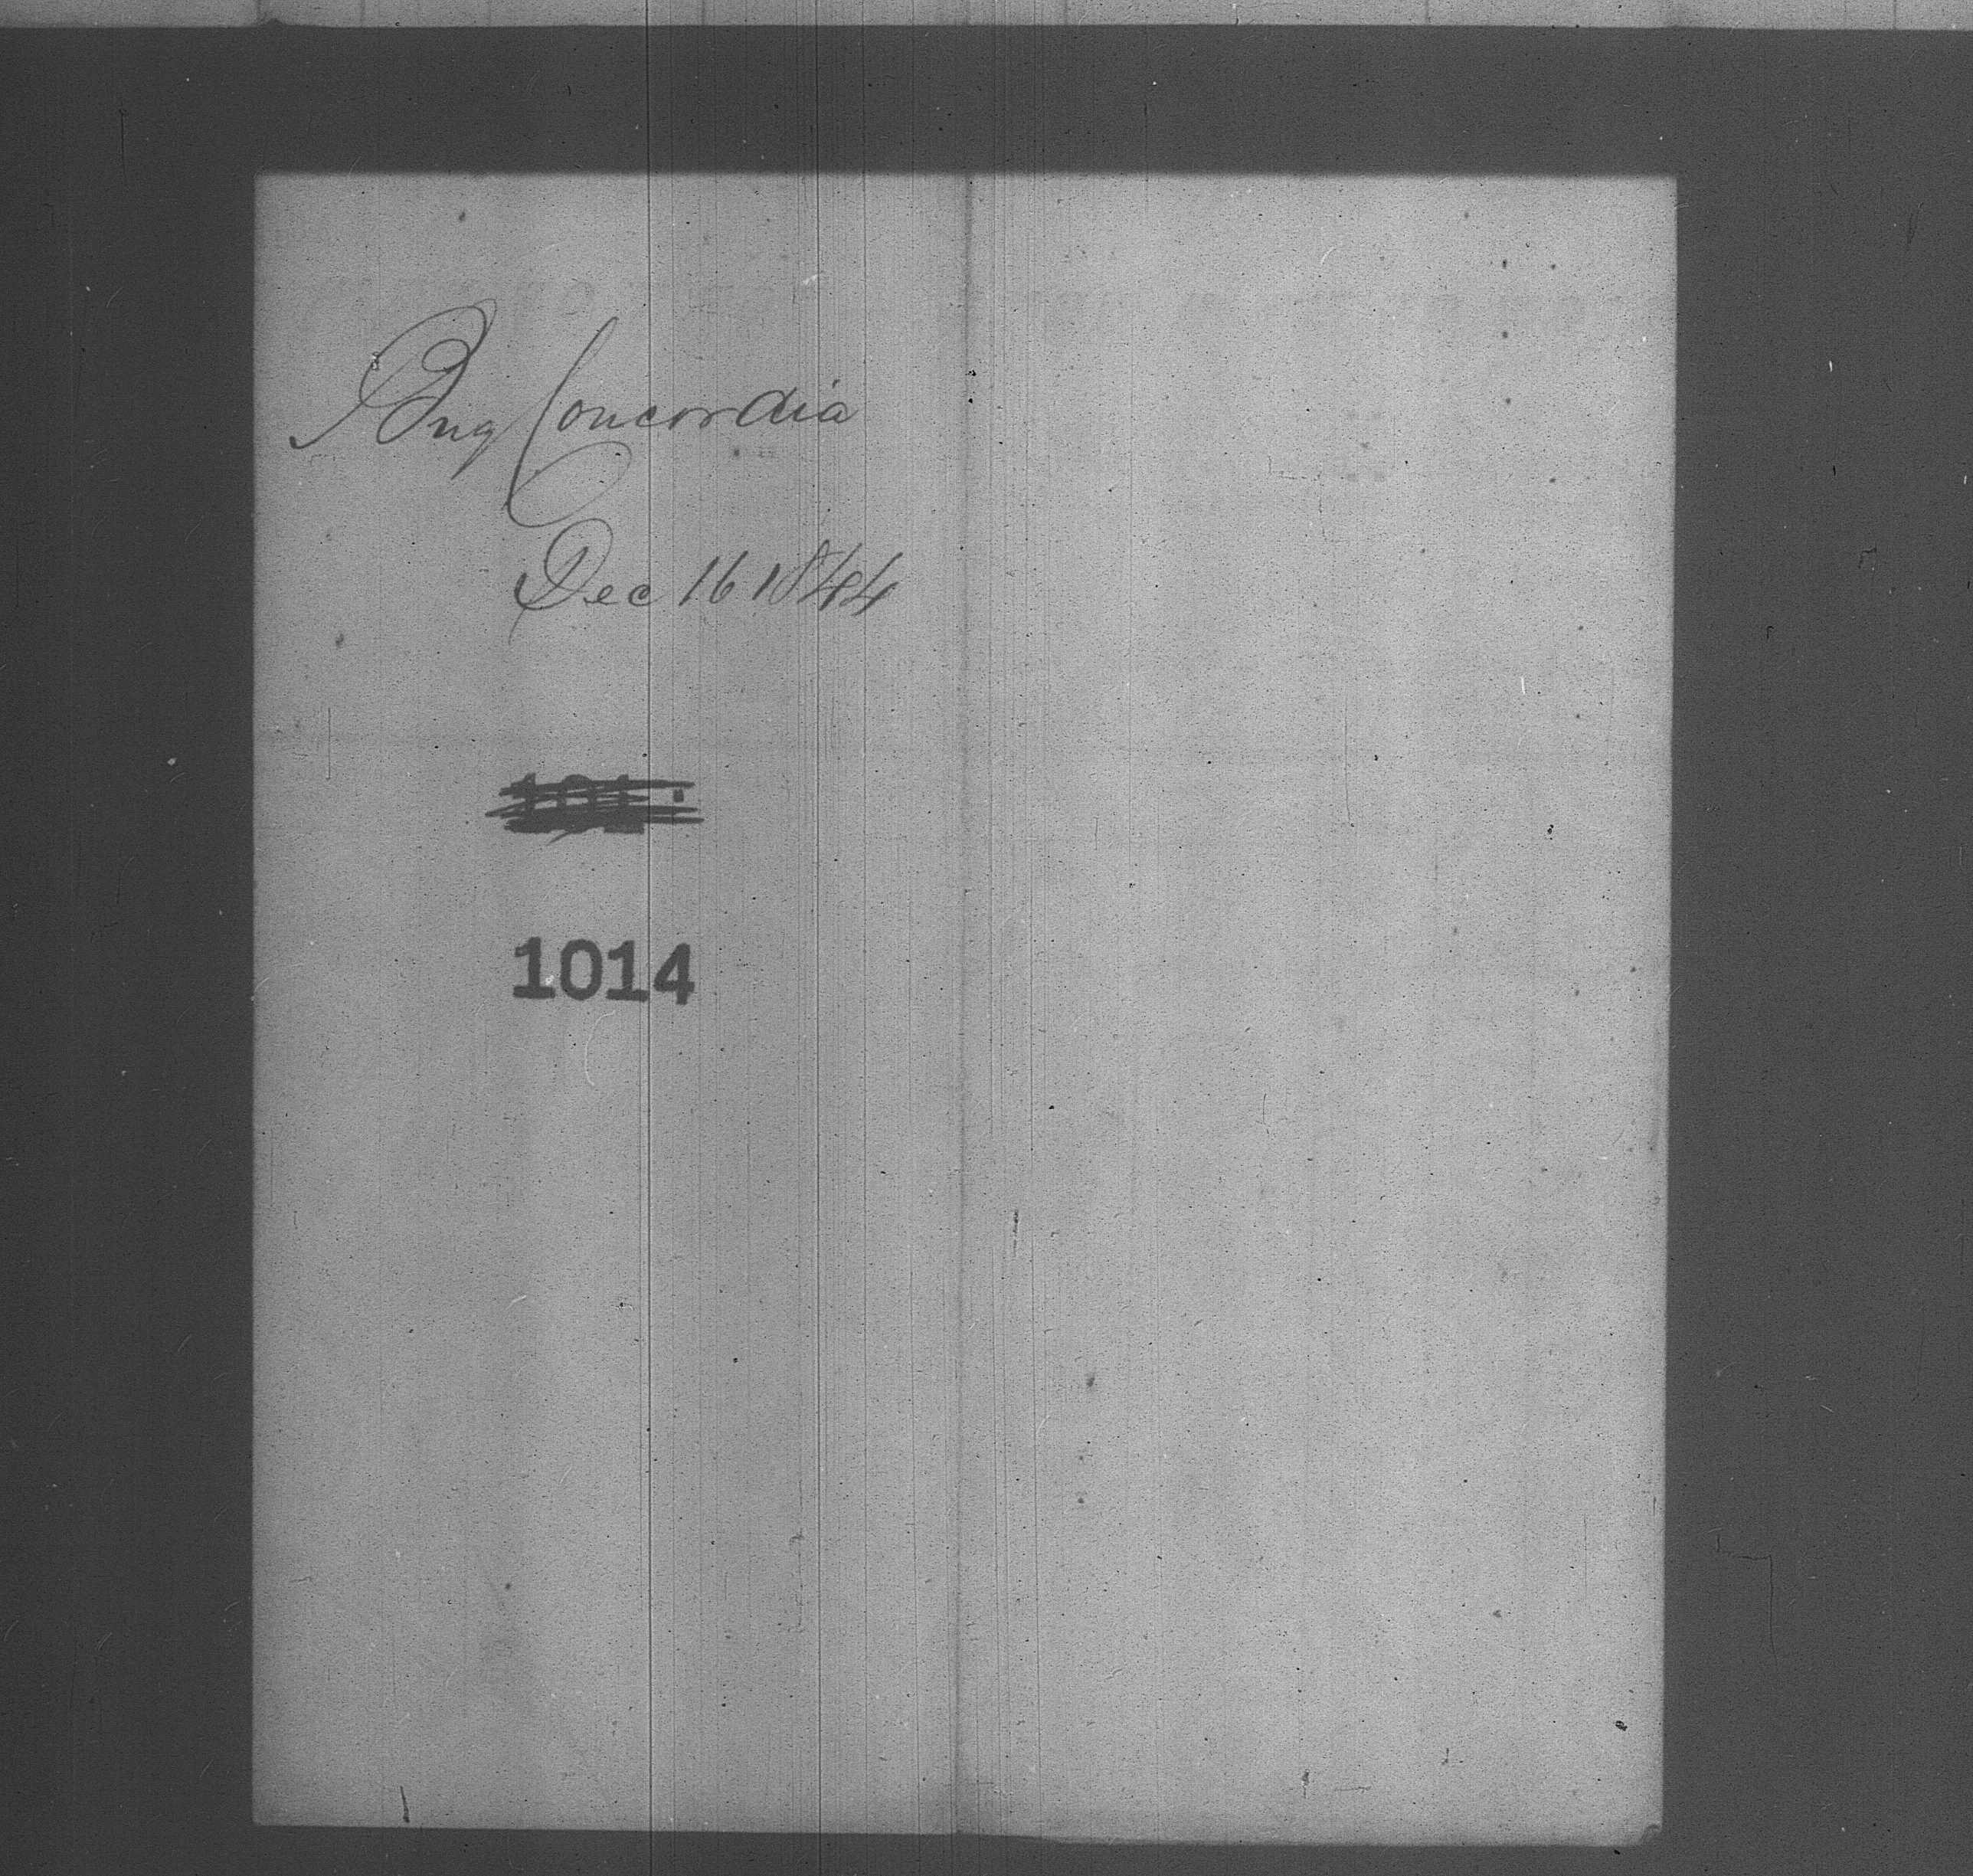 Brig Concordia
Dec 16 1844
1014